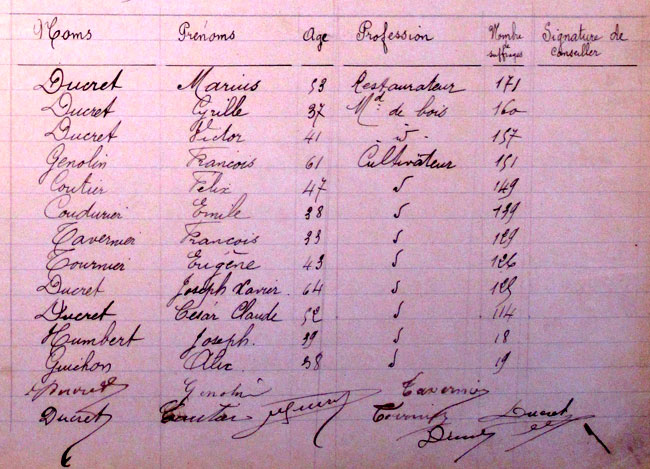 Noms Prénoms Age Profession Nombre de suffrages Signature de Conseiller
Ducret Marius 53 Restaurateur 171
Ducret Cyrille 37 Md de bois 160
Ducret Victor 41 " 157
Genolin Francois 61 Cultivateur 151
Coutier Felix 47 149
Coudurier Emile 38 139
Tavernier Francois 33 129
Tournier Eugène 43 126
Ducret Joseph Xavier. 64
Ducret César Claude 52 114
Humbert Joseph. 39 18
Guichon Alix 38 19
Genolin Tavernier
Ducret Coutier Tournier Ducret
Ducret